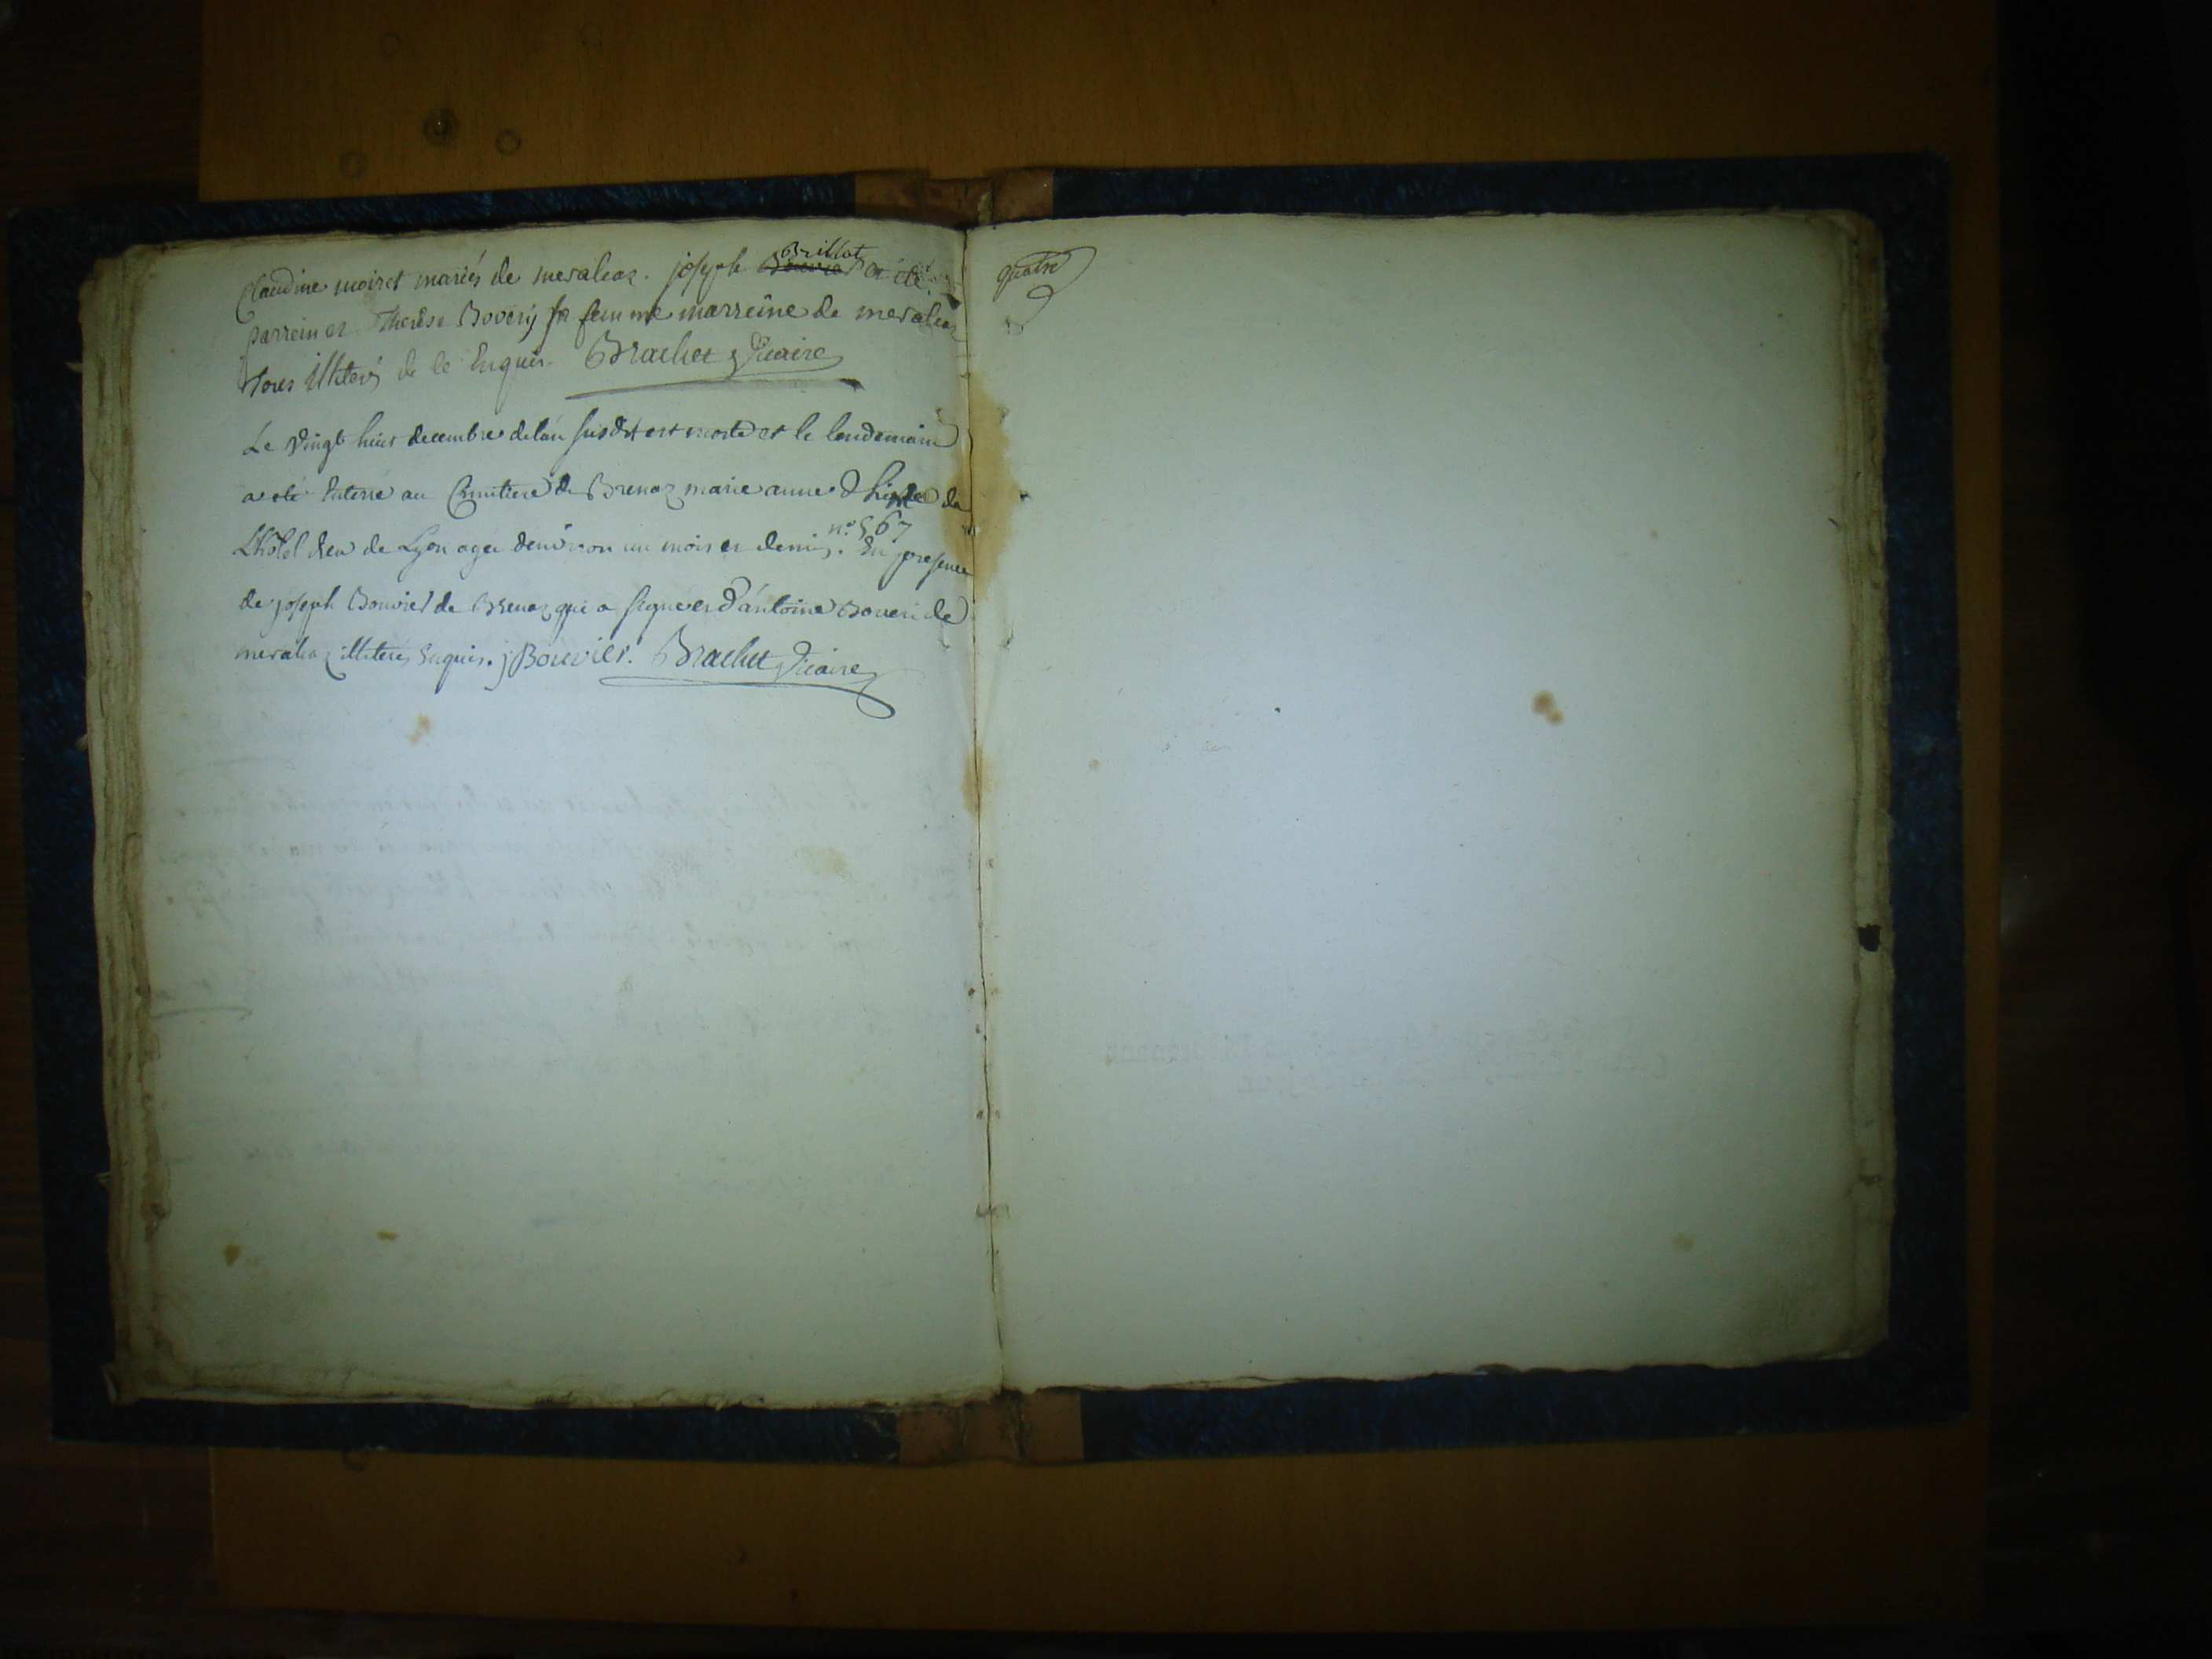 Claudine moiret mariés de meraleaz. joseph Brillot a été
parrein et Therèse Bovery sa femme marreine de meraleaz
tous illiterés de ce Enquis. Brachet Vicaire
Le vingt huit decembre de lan susdit est morte et le lendemain
a eté enterré au Cimitiere de Brenaz marie anne de
L'hôtel dieu de Lyon agee denviron un mois et demis. n.° 567 En presence
de joseph Bouvier de Brenaz qui a signé et d'antoine Boveri de
meraleaz illiteré Enquis. j Bouvier. Brachet Vicaire
quatre